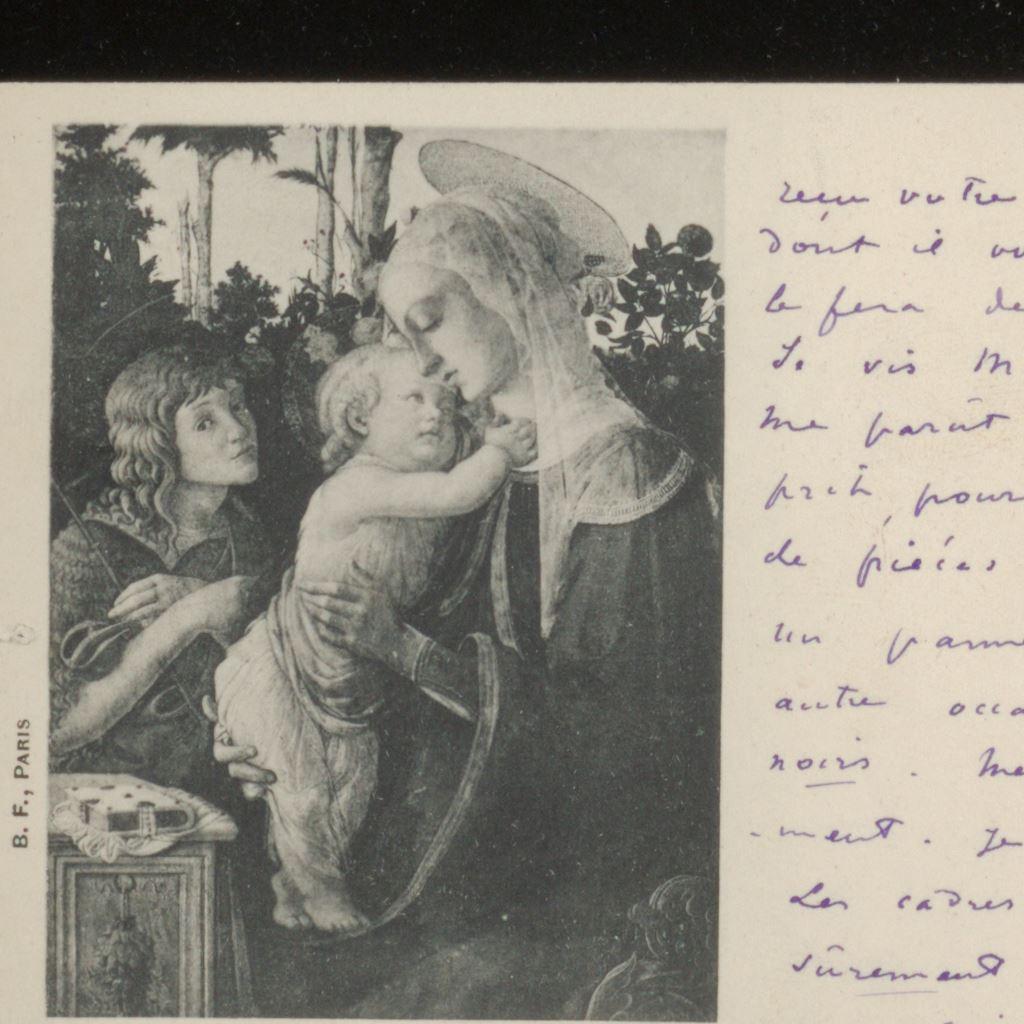 B. F., PARIS
reçu votre
dont il
le fera de
Je vis M
me paraît
prêt pour
de pièces
un
autre occa
noirs. Me
-ment. Je
Les cadres
sûrement